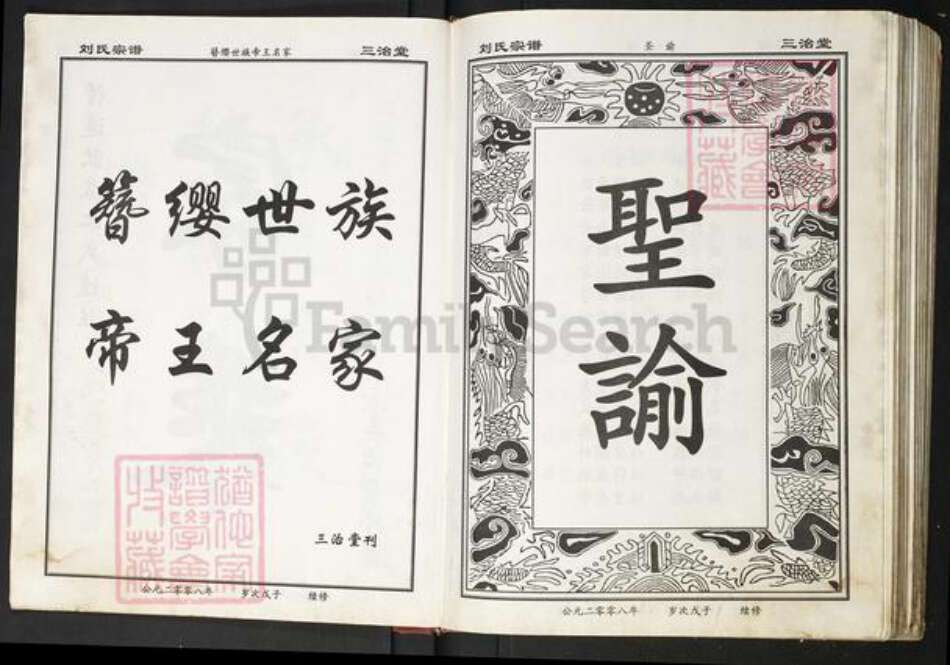 刘氏宗谱 簪缨世族帝王名家 三治堂
簪缨世族
帝王名家
三治堂刊
猶他家譜學會收藏
公元二零零八年 岁次戊子 续修
刘氏宗谱 圣谕 三治堂
聖諭
公元二零零八年 岁次戊子 续修
FamilySearch